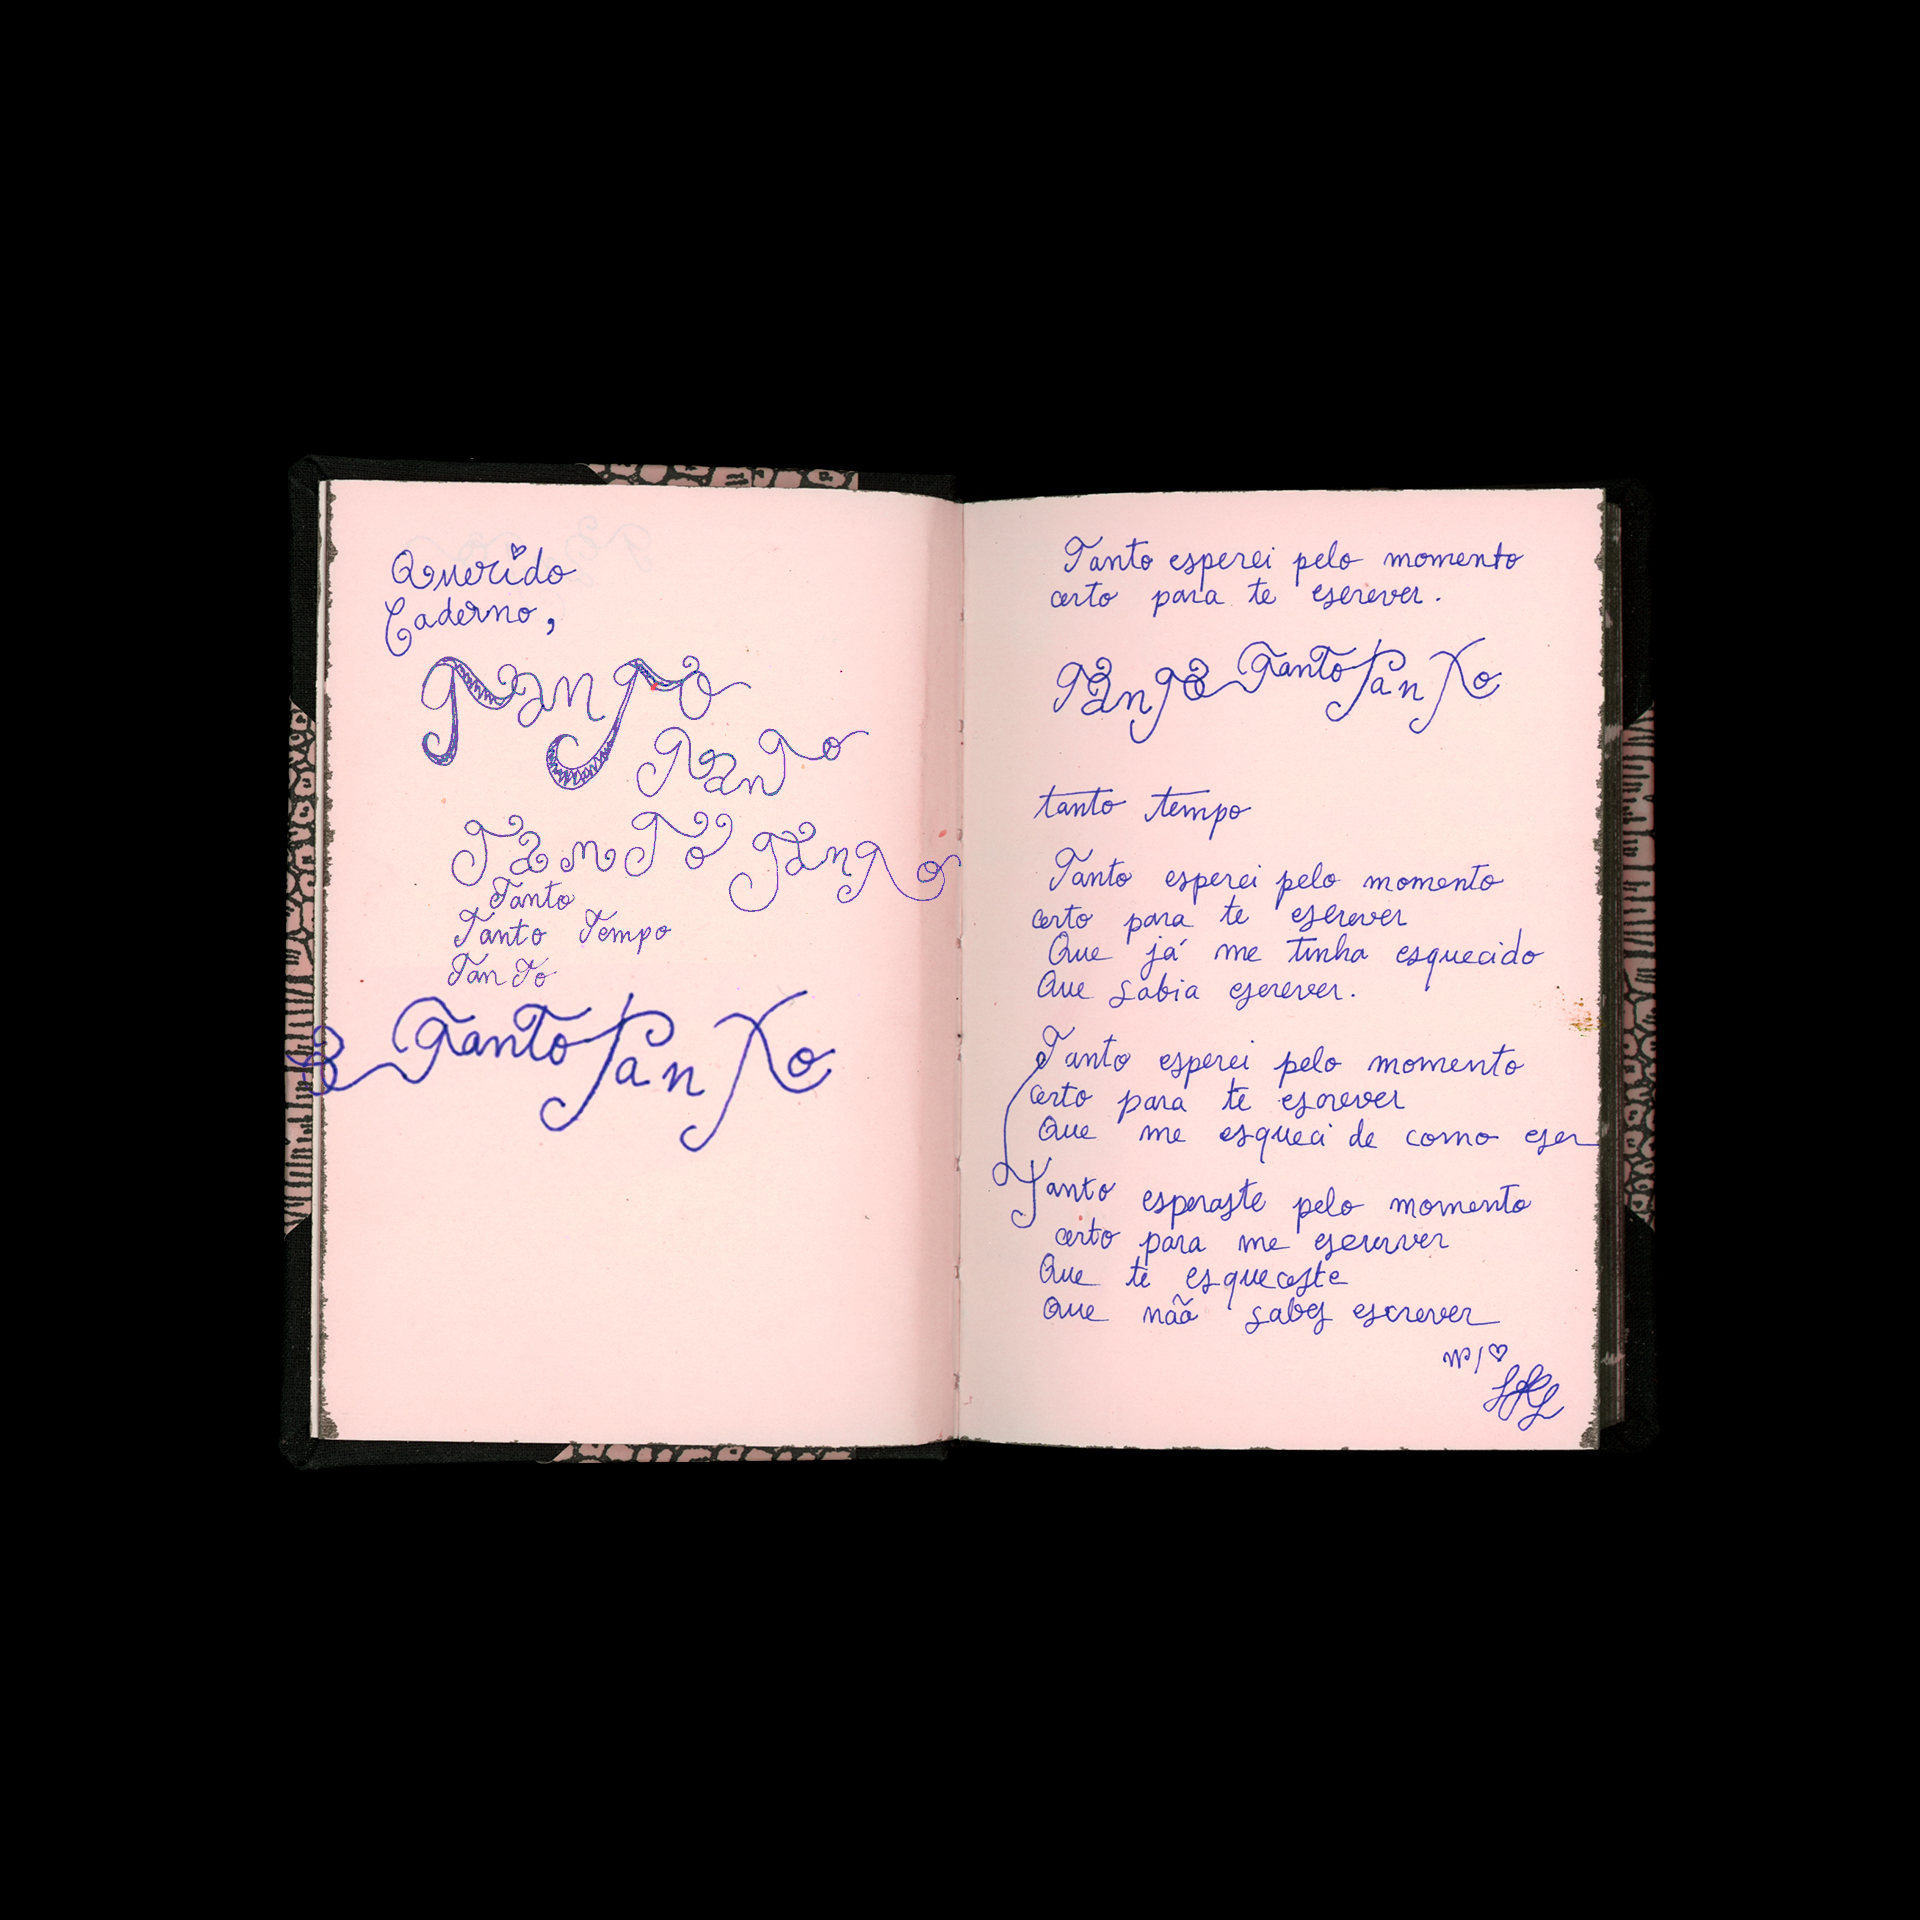 Querido
Caderno,
Tanto
Tanto
Tanto Tanto
Tanto
Tanto Tempo
Tanto
Tanto Tanto
Tanto esperei pelo momento
certo para te escrever.
Tanto Tanto Tanto
tanto tempo
Tanto esperei pelo momento
certo para te escrever
Que já me tinha esquecido
Que sabia escrever.
Tanto esperei pelo momento
certo para te escrever
Que me esqueci de como escr
Tanto esperaste pelo momento
certo para me escrever
Que te esqueceste
Que não sabes escrever